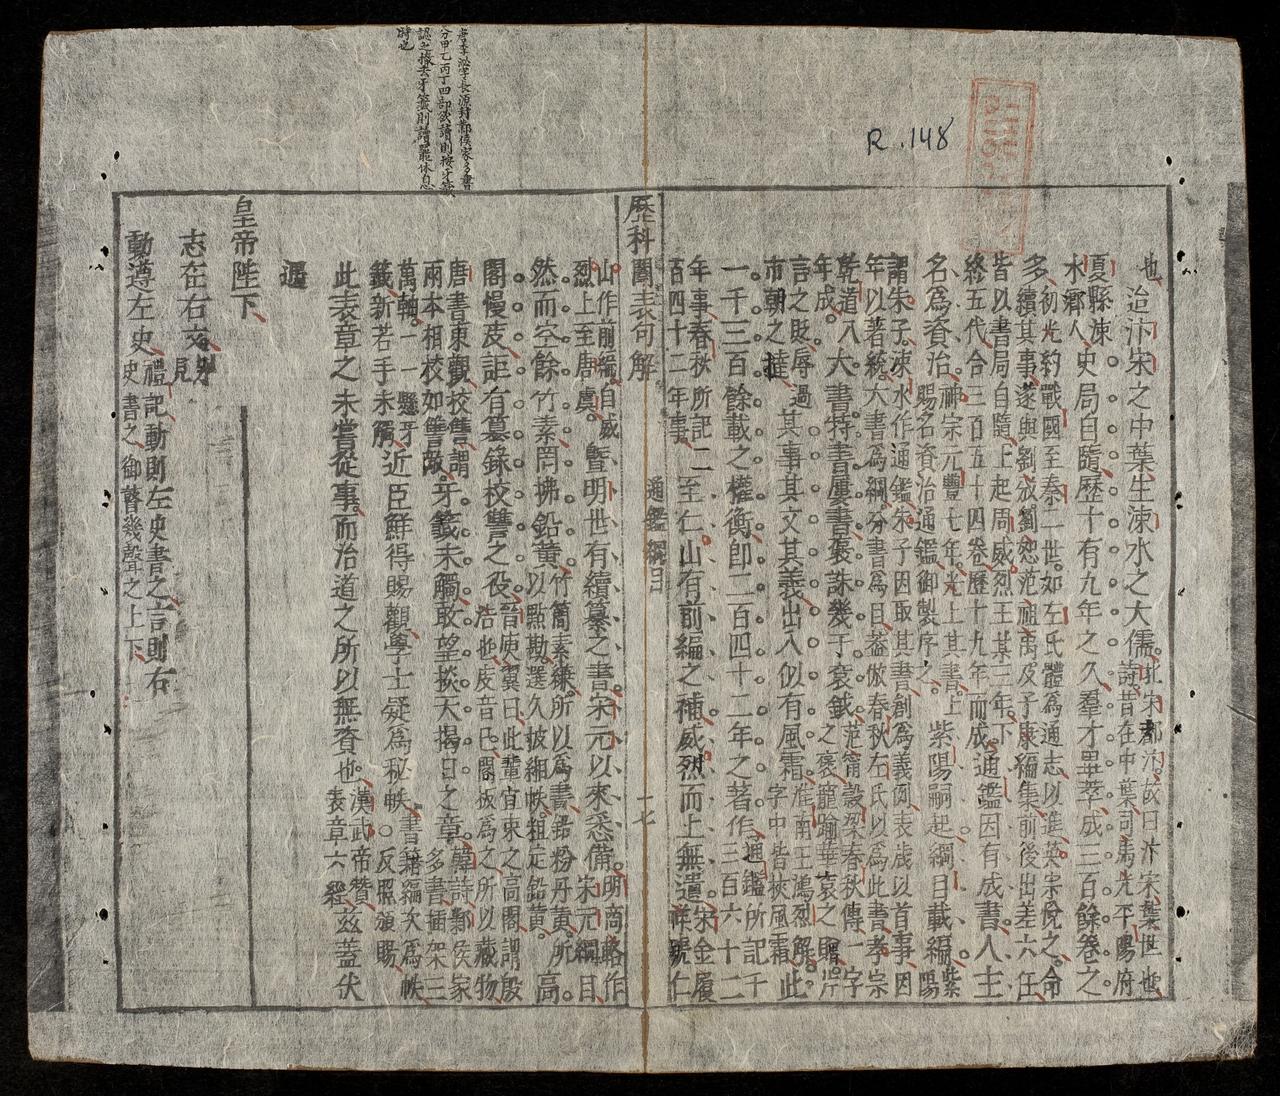 唐李泌字長源封鄴侯家多書
分甲乙丙丁四部欲讀則按牙籤
認之 去牙籤則讀罷休息
時也
R.148
也迨汴宋之中葉生涑水之大儒北宋都汴故曰汴宋葉世也
詩昔在中葉司馬光平陽府
夏縣涑
水鄉人史局日隨歷十有九年之久羣才畢萃成三百餘卷之
多初光約戰國至秦二世如左氏體為通志以進英宗悅之命
續其事遂與劉攽劉恕范祖禹及子康編集前後出差六任
皆以書局自隨上起周威烈王某三年下
終五代合三百五十四卷歷十九年而成通鑑因有成書人主
名為資治神宗元豐七年光上其書上
賜名資治通鑑御製序之紫陽嗣起綱目載編紫陽
謂朱子涑水作通鑑朱子因取其書創為義例表歲以首事因
年以著統大書為綱分書為目蓋倣春秋左氏以為此書孝宗
乾道八
年成大書特書屢書褒誅幾于袞鉞范甯穀梁春秋傳一字
之褒寵踰華袞之贈片
言之貶辱過
市朝之撻其事其文其義出入似有風霜淮南王鴻烈解此
字中皆挾風霜
一千三百餘載之權衡即二百四十二年之著作通鑑所記千
三百六十二
年事春秋所記二
百四十二年事至仁山有前編之補威烈而上無遺宋金履
祥號仁
歷科闈表句解 通鑑綱目 十七
山作前編自威
烈上至唐虞暨明世有續纂之書宋元以來悉備明商輅作
宋元綱目
然而空餘竹素罔拂鉛黃竹簡素練所以為書鉛粉丹黃所
以點勘選久披緗帙粗定鉛黃高
閣慢皮詎有纂錄校讐之役晉庾翼曰此輩宜束之高閣謂殷
浩也皮音己閣板為之所以藏物
唐書東觀校讐謂
兩本相校如讐敵牙籤未觸敢望揆大揭日之章韓詩鄴侯家
多書插架三
萬軸一一懸牙
籤新若手未觸近臣鮮得賜觀學士疑為秘帙書籍編次為帙
○反照頒賜
此表章之未嘗從事而治道之所以無資也漢武帝贊
表章六經茲蓋伏
遇
皇帝陛下
志在右文
見
動遵左史禮記動則左史書之言則右
史書之御瞽幾聲之上下